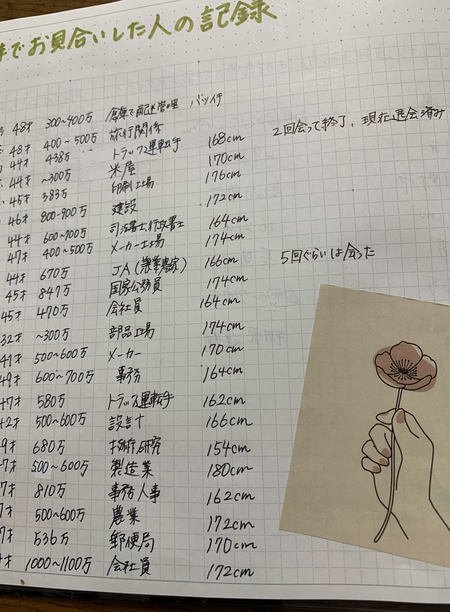 でお見合いした人の記録
48才 300~400万 倉庫で配送管理 バツイチ
48才 400~500万 旅行関係 168cm 2回会って終了、現在退会済み
44才 438万 トラック運転手 170cm
44才 ~300万 米屋 176cm
45才 383万 印刷工場 172cm
46才 800~900万 建設 164cm
44才 600~700万 司法書士,行政書士 174cm 5回ぐらいは会った
47才 400~500万 メーカー工場 166cm
44才 670万 JA(兼業農家) 174cm
45才 847万 国家公務員 164cm
45才 470万 会社員
32才 ~300万 部品工場 174cm
41才 500~600万 メーカー 170cm
49才 600~700万 事務 164cm
47才 580万 トラック運転手 162cm
42才 500~600万 設計 166cm
9才 680万 技術研究 154cm
7才 500~600万 製造業 180cm
7才 810万 事務人事 162cm
7才 500~600万 農業 172cm
7才 536万 郵便局 170cm
才 1000~1100万 会社員 172cm